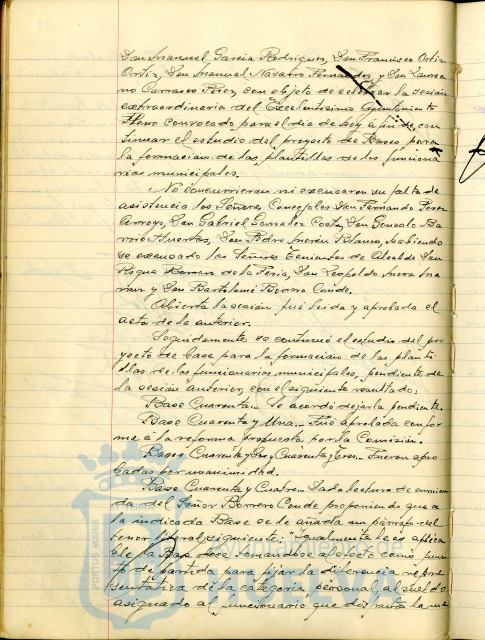 Don Manuel García Rodríguez, Don Francisco Ortiz
Ortiz, Don Manuel Navarro Fernandez, y Don Laurea
no Carrasco Perez, con objeto de celebrar la sesión
extraordinaria del Excelentísimo Ayuntamiento
Pleno convocado para el día de hoy á fin de con
tinuar el estudio del proyecto de Bases para
la formacion de las plantillas de los funciona
rios municipales.
No concurrieron ni excusaron su falta de
asistencia los Señores Concejales Don Fernando Perez
Arroyo, Don Gabriel Gonzalez Costa, Don Gonzalo Ba
rrio Huertas, Don Pedro Blanco, habiendo
se excusado los Señores Tenientes de Alcalde Don
Roque Barrero de la Feria, Don Leopoldo
y Don Bartolomé Borrero Conde.
Abierta la sesión fué leida y aprobada el
acta de la anterior.
Seguidamente se continuó el estudio del pro
yecto de base para la formacion de las planti
llas de los funcionarios municipales, pendiente de
la sesión anterior, con el siguiente resultado:
Base Cuarenta.- Se acordó dejarla pendiente.
Base Cuarenta y Una.- Fué aprobada confor
me á la reforma propuesta por la Comisión.
Bases Cuarenta y Dos y Cuarenta y Tres.- Fueron apro
badas por unanimidad.
Base Cuarenta y Cuatro.- Dada lectura de enmien
da del Señor Borrero Conde proponiendo que a
la indicada Base se le añada un párrafo del
tenor literal siguiente: "Igualmente les es aplica
ble la Base doce tomandose al efecto como pun
to de partida para fijar la diferencia repre
sentativa de la categoria personal, al sueldo
asignado al funcionario que disfruta la me
PORTUS MARIS
HUELVA